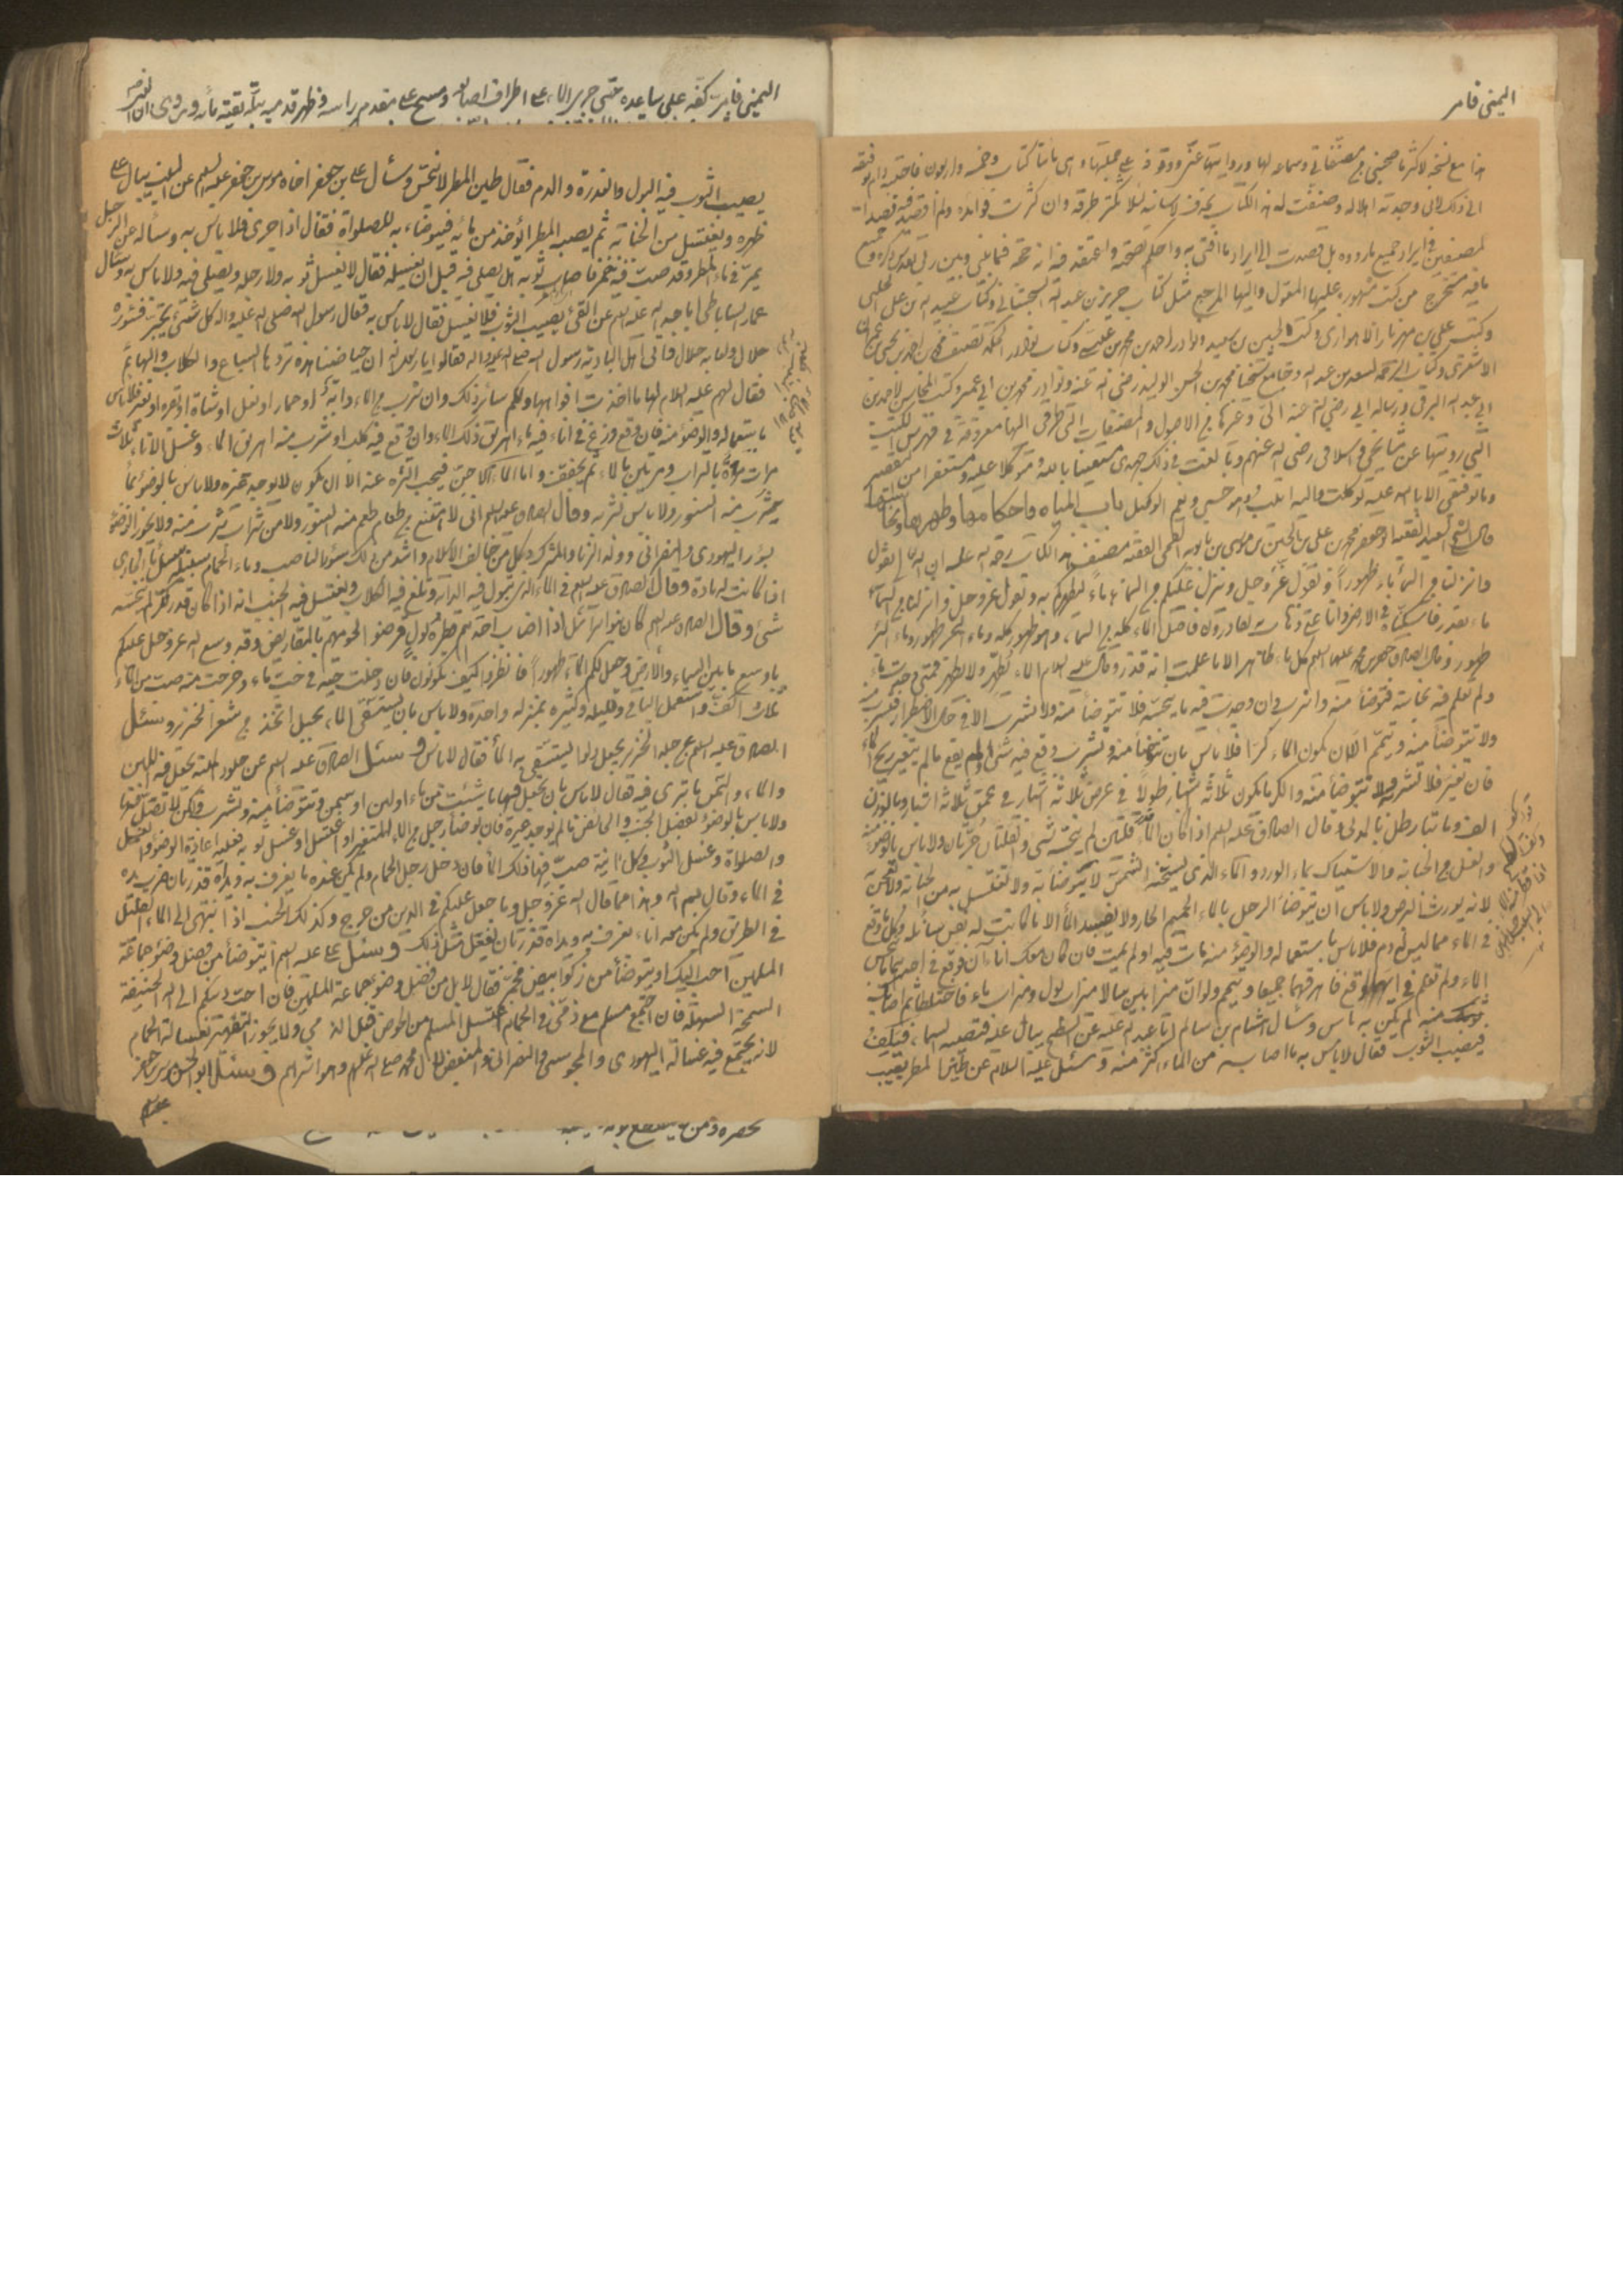 اليمنى فامر
هذا مع نسخه لاكثر ما صحبني من مصنفاتي وسماعه لها وروايتها عني ووقوفه على جملتها وهى مائتا كتاب وخمسة واربعون فاجبته ادام الله توفيقه
الى ذلك لانى وجدته اهلا له وصنفت له هذا الكتاب بحذف الاسانيد لئلا تكثر طرقه وان كثرت فوائده ولم اقصد فيه قصد
المصنفين فى ايراد جميع ما رووه بل قصدت الى ايراد ما افتى به واحكم بصحته واعتقد فيه انه حجة فيما بينى وبين ربى تقدس ذكره وجميع
ما فيه مستخرج من كتب مشهورة عليها المعول واليها المرجع مثل كتاب حريز بن عبد الله السجستانى وكتاب عبيد الله بن على الحلبى
وكتب على بن مهزيار الاهوازى وكتب الحسين بن سعيد ونوادر احمد بن محمد بن عيسى وكتاب نوادر الحكمة تصنيف محمد بن احمد بن يحيى بن عمران
الاشعرى وكتاب الرحمة لسعد بن عبد الله وجامع شيخنا محمد بن الحسن الوليد رضى الله عنه ونوادر محمد بن ابى عمير وكتب المحاسن لاحمد بن
ابى عبد الله البرقى ورسالة ابى رضى الله عنه الىّ وغيرها من الاصول والمصنفات التى طرقى اليها معروفة فى فهرس الكتب
التى رويتها عن مشايخى واسلافى رضى الله عنهم وبالغت فى ذلك جهدى مستعينا بالله ومتوكلا عليه ومستغفرا من التقصير
وما توفيقى الا بالله عليه توكلت واليه انيب وهو حسبى ونعم الوكيل باب المياه واحكامها وطهرها ونجاستها
قال الشيخ السعيد الفقيه ابو جعفر محمد بن على بن الحسين بن موسى بن بابويه القمى الفقيه مصنف هذا الكتاب رحمة الله عليه ان الله يقول
وانزلنا من السماء ماء طهورا ويقول عز وجل وينزل عليكم من السماء ماء ليطهركم به ويقول عز وجل وانزلنا من السماء
ماء بقدر فاسكناه فى الارض وانا على ذهاب به لقادرون فاصل الماء كله من السماء وهو طهور كله وماء البحر طهور وماء البئر
طهور وقال الصادق جعفر بن محمد عليهما السلم كل ماء طاهر الا ما علمت انه قذر وقال عليه السلام الماء يطهر ولا يطهر فمتى وجدت ماء
ولم تعلم فيه نجاسة فتوضأ منه واشرب وان وجدت فيه ما ينجسه فلا تتوضأ منه ولا تشرب الا فى حال الاضطرار فتشرب منه
ولا تتوضأ منه وتيمم الا ان يكون الماء كرا فلا بأس بان تتوضأ منه وتشرب وقع فيه شئ او لم يقع ما لم يتغير ريح الماء
فان تغير فلا تشرب ولا تتوضأ منه والكر ما يكون ثلاثة اشبار طولا فى عرض ثلاثة اشبار فى عمق ثلاثة اشبار وبالوزن
الف ومائتا رطل بالمدنى وقال الصادق عليه السلم اذا كان الماء قلتين لم ينجسه شئ والقلتان جرتان ولا باس بالوضوء
والغسل من الجنابة والاستياك بماء الورد والماء الذى يسخنه الشمس لا يتوضأ به ولا تغتسل به من الجنابة ولا تعجن
لانه يورث البرص ولا باس ان يتوضأ الرجل بالماء الحميم الحار ولا يفسد الماء الا ما كانت له نفس سائلة وكل ما وقع
فى الماء مما ليس له دم فلا باس باستعماله والوضوء منه مات فيه او لم يمت فان كان معك اناءان فوقع فى احدهما ما ينجس
الماء ولم تعلم فى ايهما وقع فاهرقهما جميعا وتيمم ولو ان ميزابين سالا ميزاب بول وميزاب ماء فاختلطا ثم اصاب
ثوبك منه لم يكن به باس وسأل هشام بن سالم ابا عبد الله عليه عن السطح يبال عليه فتصيبه السماء فيكف
فيصيب الثوب فقال لاباس به ما اصابه من الماء اكثر منه وسئل عليه السلام عن طين المطر يصيب
اليمنى فامرّ كفه على ساعده حتى جرى الماء على اطراف اصابعه ومسح على مقدم راسه وظهر قدميه ببلة بقية مائه وروى ان
يصيب الثوب فيه البول والعذرة والدم فقال طين المطر لا ينجس وسأل على بن جعفر اخاه موسى بن جعفر عليه السلم عن البيت يبال على
ظهره ويغتسل من الجنابة ثم يصيبه المطر ايؤخذ من مائه فيتوضاء به للصلواة فقال اذا جرى فلا باس به وسأله عن الرجل
يمر فى ماء المطر وقد صبت فيه خمر فاصاب ثوبه هل يصلى فيه قبل ان يغسله فقال لا يغسل ثوبه ولا رجله ويصلى فيه ولا باس به وسأل
عمار الساباطى ابا عبد الله عليه السلم عن القئ يصيب الثوب فلا يغسل فقال لا باس به وقال رسول الله صلى الله عليه واله كل شئ يجتر فسؤره
حلال ولعابه حلال واتى اهل البادية رسول الله صلى الله عليه واله فقالوا يا رسول الله ان حياضنا هذه تردها السباع والكلاب والبهائم
فقال لهم عليه السلام لها ما اخذت افواهها ولكم سائر ذلك وان شرب من الماء دابة او حمار او بغل او شاة او بقرة او بعير فلا باس
باستعماله والوضوء منه فان وقع وزغ فى اناء فيه ماء اهريق ذلك الماء وان وقع فيه كلب او شرب منه اهريق الماء وغسل الاناء ثلاث
مرات مرة بالتراب ومرتين بالماء ثم يجفف واما الماء الآجن فيجب التنزه عنه الا ان يكون لا يوجد غيره ولا باس بالوضوء بماء
يشرب منه السنور ولا باس بشربه وقال الصادق عليه السلم انى لا امتنع من طعام طعم منه السنور ولا من شراب شرب منه ولا يجوز الوضوء
بسؤر اليهودى والنصرانى وولد الزنا والمشرك وكل من خالف الاسلام واشد من ذلك سؤر الناصب وماء الحمام سبيله سبيل الماء الجارى
اذا كانت له مادة وقال الصادق عليه السلم فى الماء الذى تبول فيه الدواب وتلغ فيه الكلاب ويغتسل فيه الجنب انه اذا كان قدر كر لم ينجسه
شئ وقال الصادق عليه السلم كان بنو اسرائيل اذا اصاب احدهم قطرة بول قرضوا لحومهم بالمقاريض وقد وسع الله عز وجل عليكم
باوسع ما بين السماء والارض وجعل لكم الماء طهورا فانظروا كيف تكونون فان دخلت حية فى حب ماء وخرجت منه صب من الماء
ثلاث اكف واستعمل الباقى وقليله وكثيره بمنزلة واحدة ولا باس بان يستقى الماء بحبل اتخذ من شعر الخنزير وسئل
الصادق عليه السلم عن جلد الخنزير يجعل دلوا يستقى به الماء فقال لا باس وسئل الصادق عليه السلم عن جلود الميتة يجعل فيها اللبن
والماء والسمن ما ترى فيه فقال لا باس بان تجعل فيها ما شئت من ماء او لبن او سمن وتتوضأ منه وتشرب ولكن لا تصل فيها
ولا باس بالوضوء بفضل الجنب والحائض ما لم يوجد غيره فان توضأ رجل من الماء المتغير او اغتسل او غسل ثوبه فعليه اعادة الوضوء والغسل
والصلواة وغسل الثوب وكل آنية صب فيها ذلك الماء فان دخل رجل الحمام ولم يكن عنده ما يغرف به ويداه قذرتان ضرب يده
فى الماء وقال بسم الله وهذا مما قال الله عز وجل وما جعل عليكم فى الدين من حرج وكذلك الجنب اذا انتهى الى الماء القليل
فى الطريق ولم يكن معه اناء يغرف به ويداه قذرتان يفعل مثل ذلك وسئل على عليه السلم ايتوضأ من فضل وضوء جماعة
المسلمين احب اليك او يتوضأ من ركو ابيض مخمر فقال لا بل من فضل وضوء جماعة المسلمين فان احب دينكم الى الله الحنيفية
السمحة السهلة فان اجتمع مسلم مع ذمى فى الحمام اغتسل المسلم من الحوض قبل الذمى ولا يجوز التطهير بغسالة الحمام
لانه يجتمع فيه غسالة اليهودى والمجوسى والنصرانى والمبغض لآل محمد صلى الله عليهم وهو اشرهم وسئل ابو الحسن موسى بن جعفر
عليه السلم